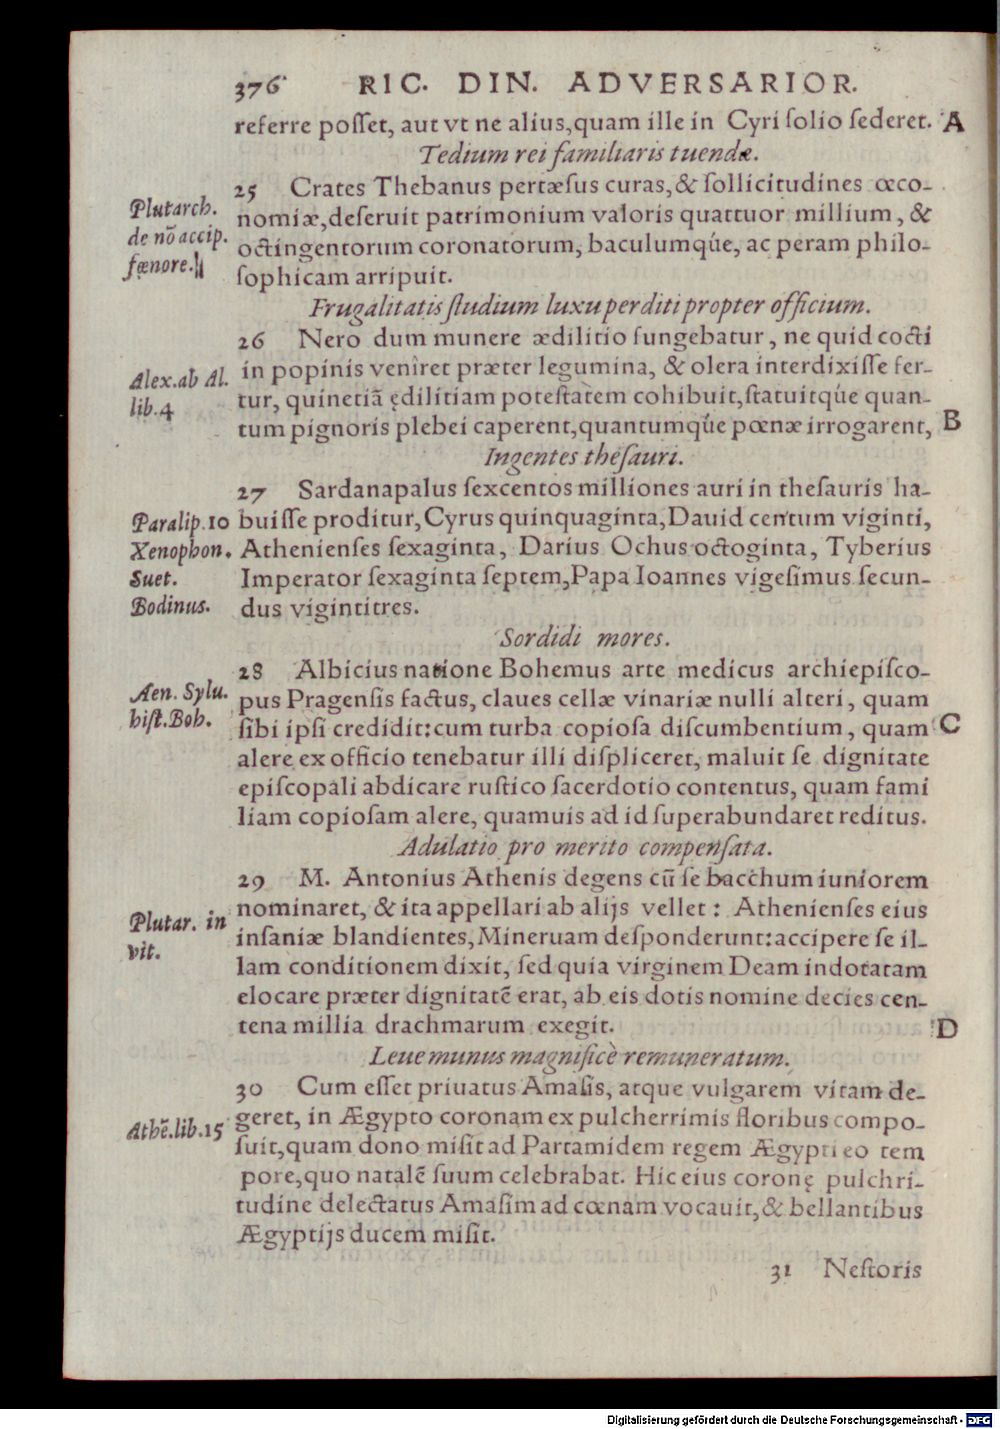 376 RIC. DIN. ADVERSARIOR.
referre posset, aut vt ne alius, quam ille in Cyri solio sederet. A
Tedium rei familiaris tuendæ.
25 Crates Thebanus pertæsus curas, & sollicitudines œco-
nomiæ, deseruit patrimonium valoris quattuor millium, &
octingentorum coronatorum, baculumqúe, ac peram philo-
sophicam arripuit.
Plutarch.
de nõ accip.
fœnore.
Frugalitatis studium luxu perditi propter officium.
26 Nero dum munere ædilitio fungebatur, ne quid cocti
in popinis veniret præter legumina, & olera interdixisse fer-
tur, quinetiã ędilitiam potestatem cohibuit, statuitqúe quan-
tum pignoris plebei caperent, quantumqúe pœnæ irrogarent, B
Alex. ab Al.
lib. 4
Ingentes thesauri.
27 Sardanapalus sexcentos milliones auri in thesauris ha-
buisse proditur, Cyrus quinquaginta, Dauid centum viginti,
Athenienses sexaginta, Darius Ochus octoginta, Tyberius
Imperator sexaginta septem, Papa Ioannes vigesimus secun-
dus vigintitres.
Paralip. 10
Xenophon.
Suet.
Bodinus.
Sordidi mores.
28 Albicius natione Bohemus arte medicus archiepisco-
pus Pragensis factus, claues cellæ vinariæ nulli alteri, quam
sibi ipsi credidit: cum turba copiosa discumbentium, quam C
alere ex officio tenebatur illi displiceret, maluit se dignitate
episcopali abdicare rustico sacerdotio contentus, quam fami
liam copiosam alere, quamuis ad id superabundaret reditus.
Aen. Sylu.
hist. Boh.
Adulatio pro merito compensata.
29 M. Antonius Athenis degens cũ se bacchum iuniorem
nominaret, & ita appellari ab alijs vellet: Athenienses eius
insaniæ blandientes, Mineruam desponderunt: accipere se il-
lam conditionem dixit, sed quia virginem Deam indotatam
elocare præter dignitatẽ erat, ab eis dotis nomine decies cen-
tena millia drachmarum exegit. D
Plutar. in
vit.
Leue munus magnificè remuneratum.
30 Cum esset priuatus Amasis, atque vulgarem vitam de-
geret, in Ægypto coronam ex pulcherrimis floribus compo-
suit, quam dono misit ad Partamidem regem Ægypti eo tem
pore, quo natalẽ suum celebrabat. Hic eius coronę pulchri-
tudine delectatus Amasim ad cœnam vocauit, & bellantibus
Ægyptijs ducem misit.
Athẽ. lib. 15
31 Nestoris
Digitalisierung gefördert durch die Deutsche Forschungsgemeinschaft - DFG